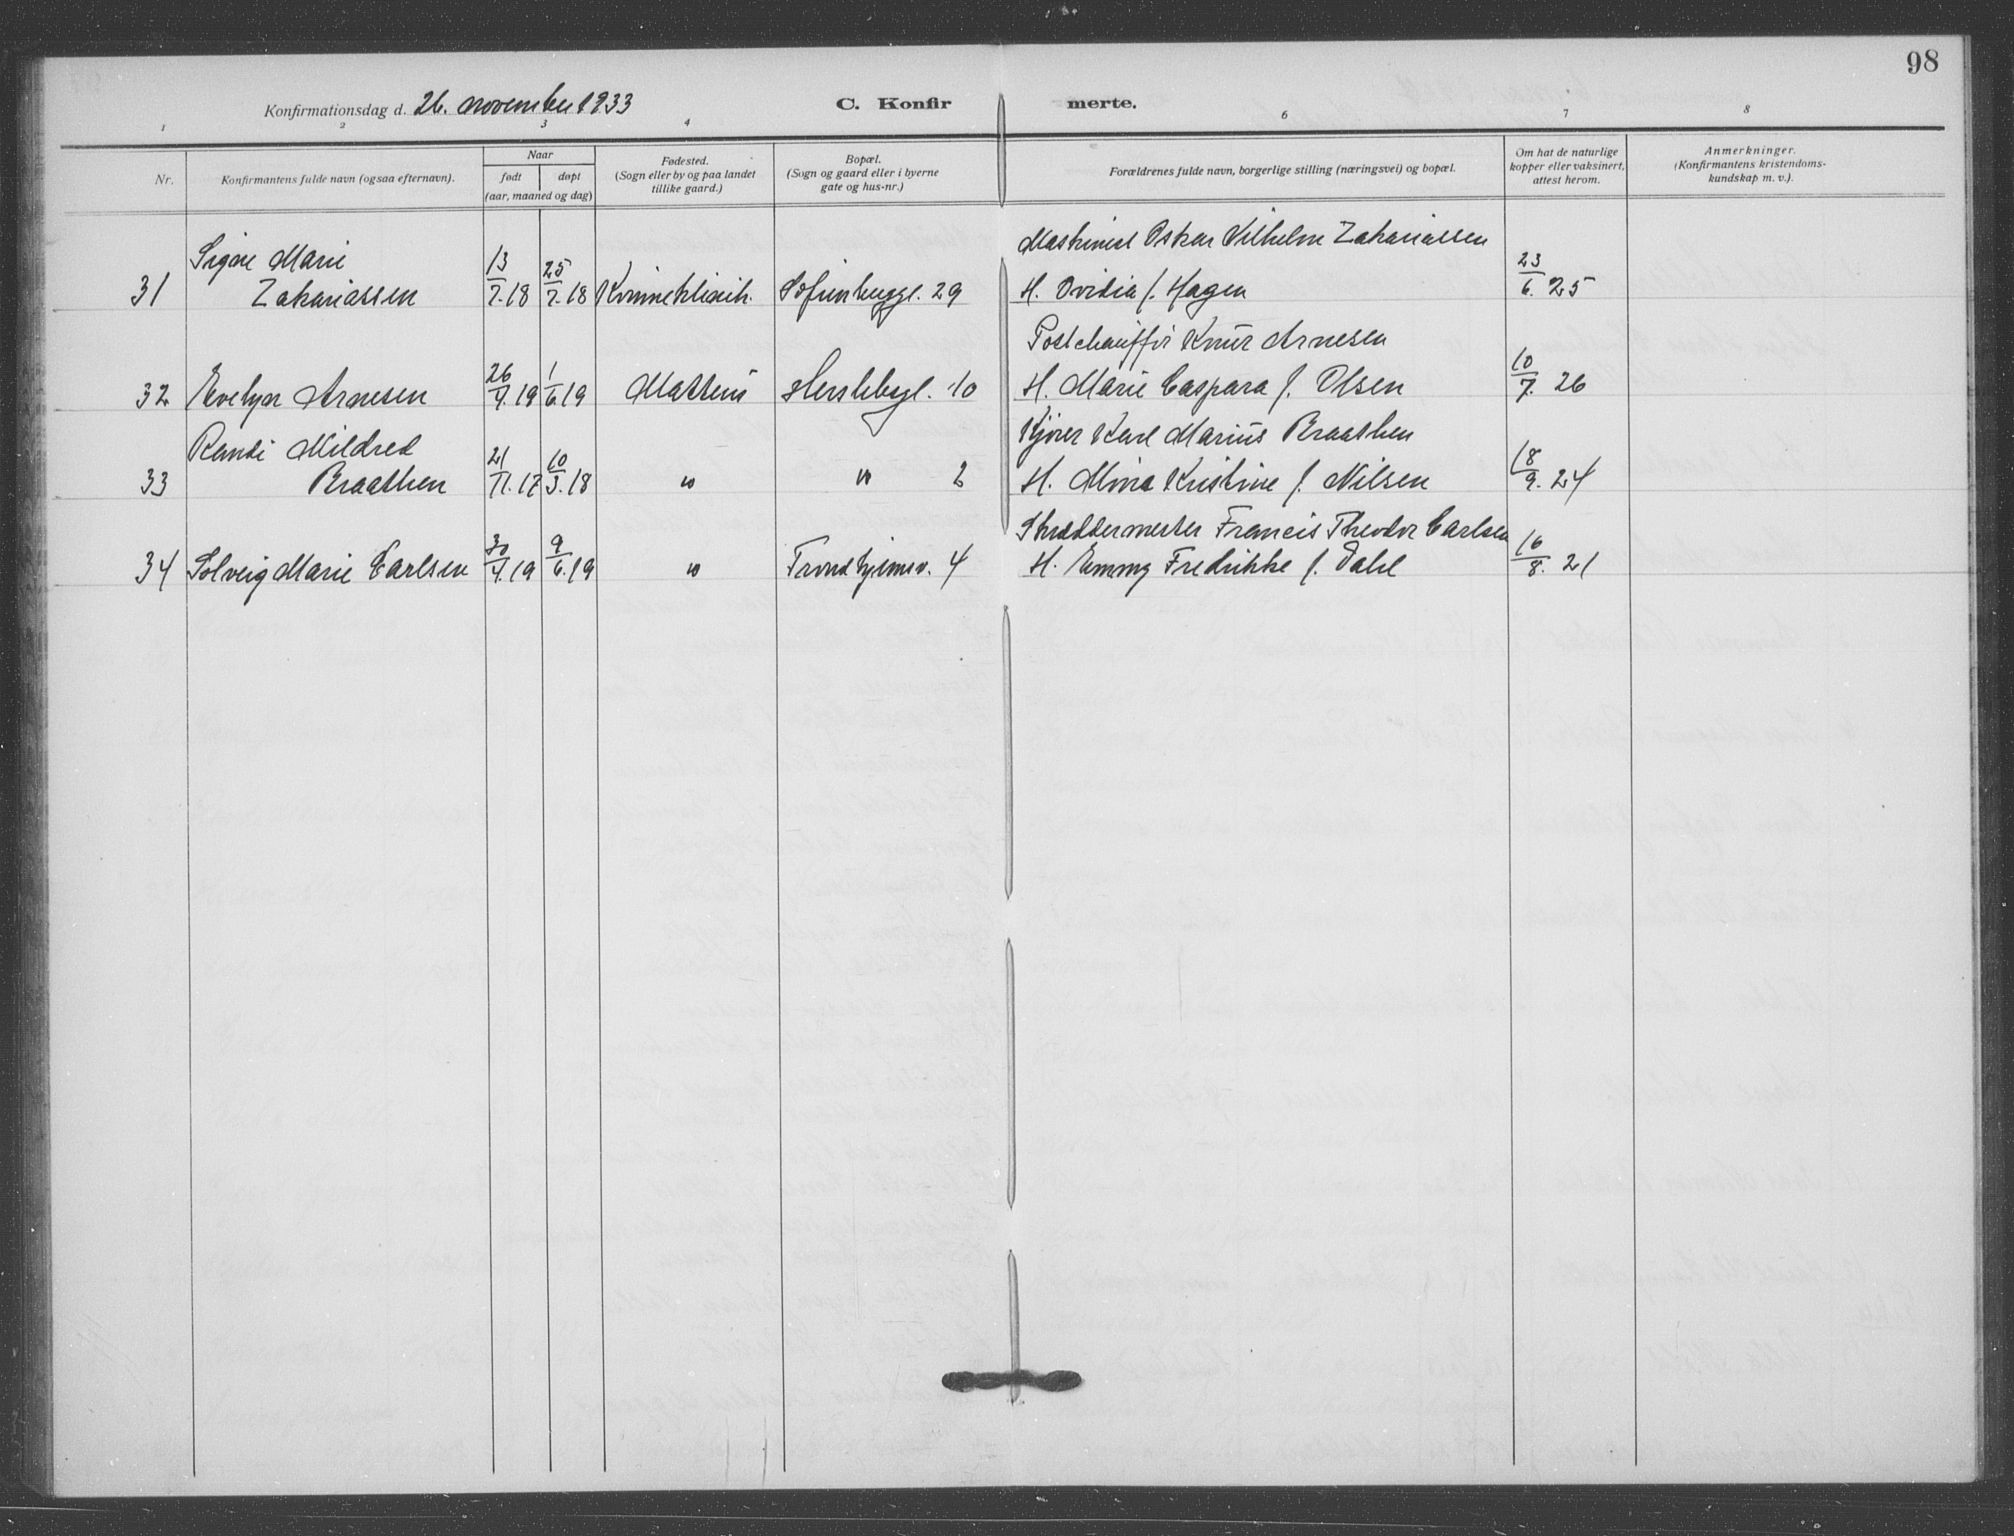 98
Konfirmationsdag d. 26. november 1933
C. Konfirmerte.
1 2 3 4 6 7 8
Nr.
Konfirmantens fulde navn (ogsaa efternavn).
Naar
født døpt
(aar, maaned og dag)
Fødested.
(Sogn eller by og paa landet
tillike gaard.)
Bopæl.
(Sogn og gaard eller i byerne
gate og hus-nr.)
Forældrenes fulde navn, borgerlige stilling (næringsvei) og bopæl.
Om hat de naturlige
kopper eller vaksinert,
attest herom.
Anmerkninger.
(Konfirmantens kristendoms-
kundskap m. v.).
Signe Marie Maskinist Oskar Vilhelm Zakariassen
31 Zakariassen 13/7.18 25/7.18 Kvinneklinik. 29 H. Ovidia f. Hagen 23/6. 25
Postchauffør Knut Arnesen
32 Evelyn Arnesen 26/4.19 1/6.19 Matteus Herslebsgt. 10 H. Marie Caspara f. Olsen 10/7. 26
Randi Mildred Kjører Karl Marius Braathen
33 Braathen 21/11.17 10/3.18 " " 2 H. Mina Kristine f. Nilsen 18/9. 24
Skreddermester Francis Theodor Carlsen
34 Solveig Marie Carlsen 30/4.19 9/6.19 " Trondhjemsv. 4 H. Emmy Fredrikke f. Dahl 16/8. 21